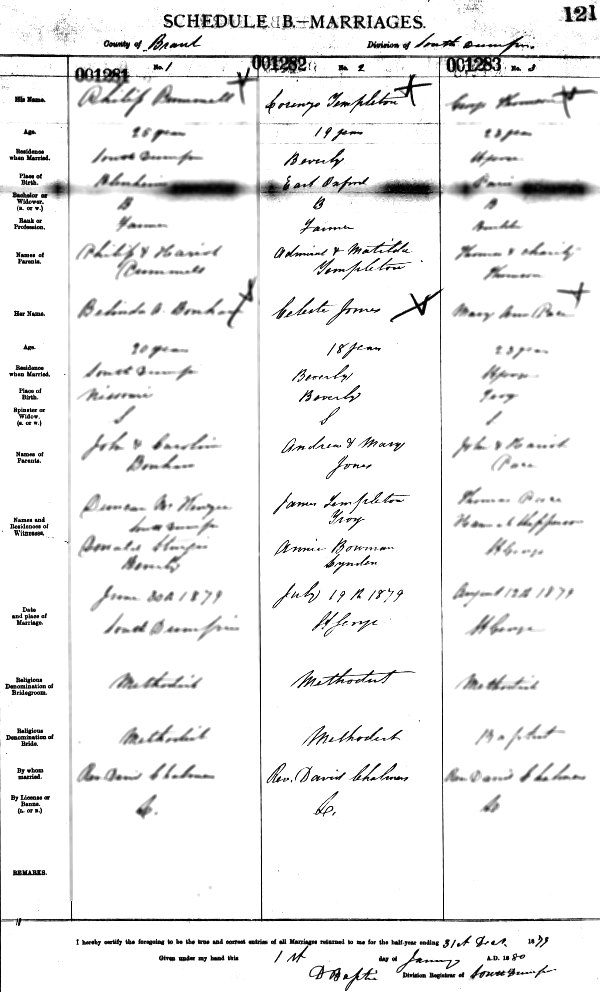 121
SCHEDULE B.—MARRIAGES.
County of Brant Division of South Dumfries
001281 No. 1 001282 No. 2 001283 No. 3
His Name. Philip Lorenzo Templeton George Thomson
Age. 25 years 19 years 23 years
Residence when Married. South Dumfries Beverly
Place of Birth. Blenheim East Oxford Paris
Bachelor or Widower. (B. or W.) B B B
Rank or Profession. Farmer Farmer
Names of Parents. Philip & Harriet Admiral & Matilda Thomas & Charity
Templeton Thomson
Her Name. Belinda A. Bonham Celeste Jones Mary Ann
Age. 20 years 18 years 23 years
Residence when Married. South Dumfries Beverly
Place of Birth. Missouri Beverly Troy
Spinster or Widow. (S. or W.) S S S
Names of Parents. John & Caroline Andrew & Mary John & Harriet
Bonham Jones
Names and Residences of Witnesses. Duncan James Templeton Thomas
South Dumfries Troy Hannah
Sturgis Annie Bowman St George
Beverly Lynden
Date and place of Marriage. June 30th 1879 July 19th 1879 August 12th 1879
South Dumfries St George St George
Religious Denomination of Bridegroom. Methodist Methodist Methodist
Religious Denomination of Bride. Methodist Methodist Baptist
By whom married. Rev. David Chalmers Rev. David Chalmers Rev. David Chalmers
By License or Banns. (L. or B.) L. L. L
REMARKS.
I hereby certify the foregoing to be the true and correct entries of all Marriages returned to me for the half-year ending 31st Dec. 1879
Given under my hand this 1st day of January A.D. 1880
D Baptie Division Registrar of South Dumfries